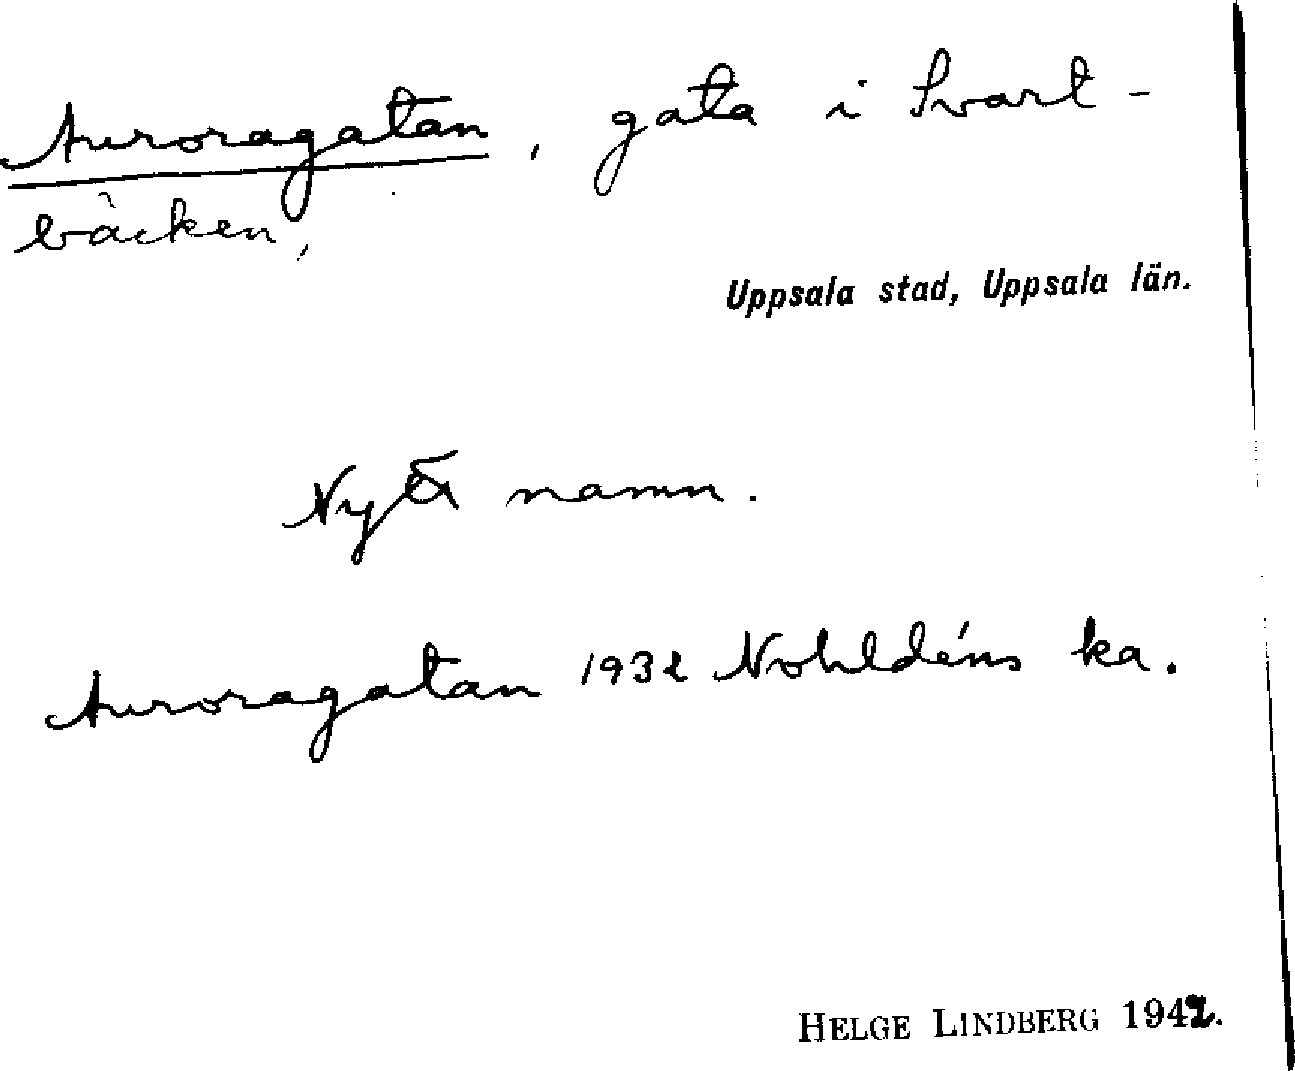 Auroragatan, gata i Svart-
bäcken,
Uppsala stad, Uppsala län.
Nytt namn.
Auroragatan 1932 Nohldéns ka.
HELGE LINDBERG 1942.